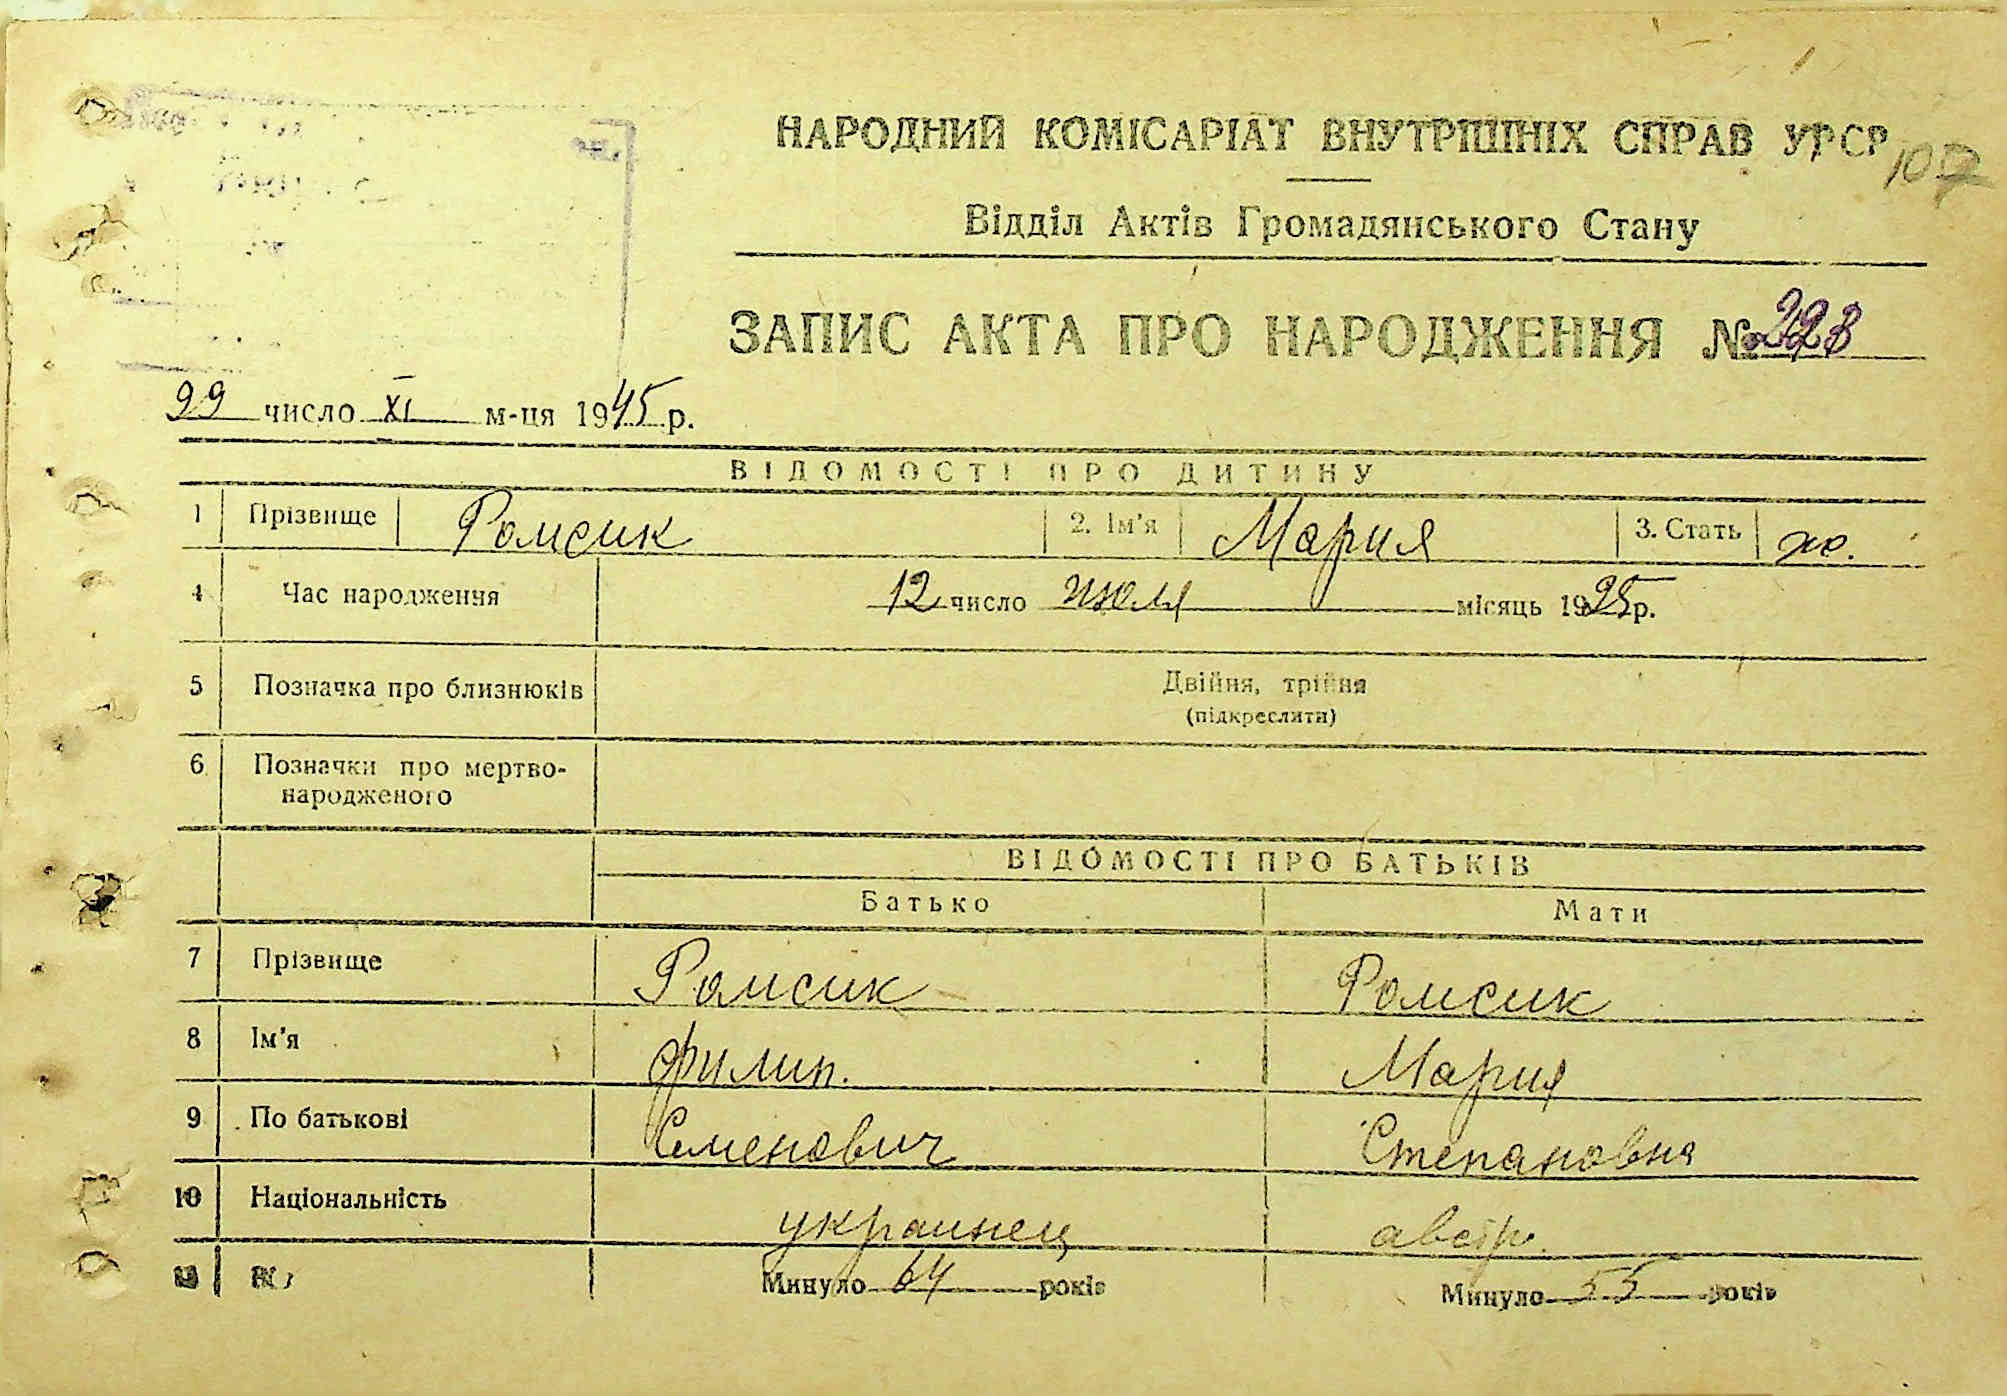 НАРОДНИЙ КОМІСАРІАТ ВНУТРІШНІХ СПРАВ УРСР
107
Відділ Актів Громадянського Стану
ЗАПИС АКТА ПРО НАРОДЖЕННЯ № 223
22 число XI м-ця 1945 р.
ВІДОМОСТІ ПРО ДИТИНУ
1 Прізвище Ромсик 2. Ім'я Мария 3. Стать ж.
4 Час народження 12 число июля місяць 1925 р.
5 Позначка про близнюків Двійня, трійня
(підкреслити)
6 Позначки про мертво-
народженого
ВІДОМОСТІ ПРО БАТЬКІВ
Батько Мати
7 Прізвище Ромсик Ромсик
8 Ім'я Филип. Мария
9 По батькові Семенович Степановна
10 Національність украинец австр.
Минуло 64 років Минуло 55 років